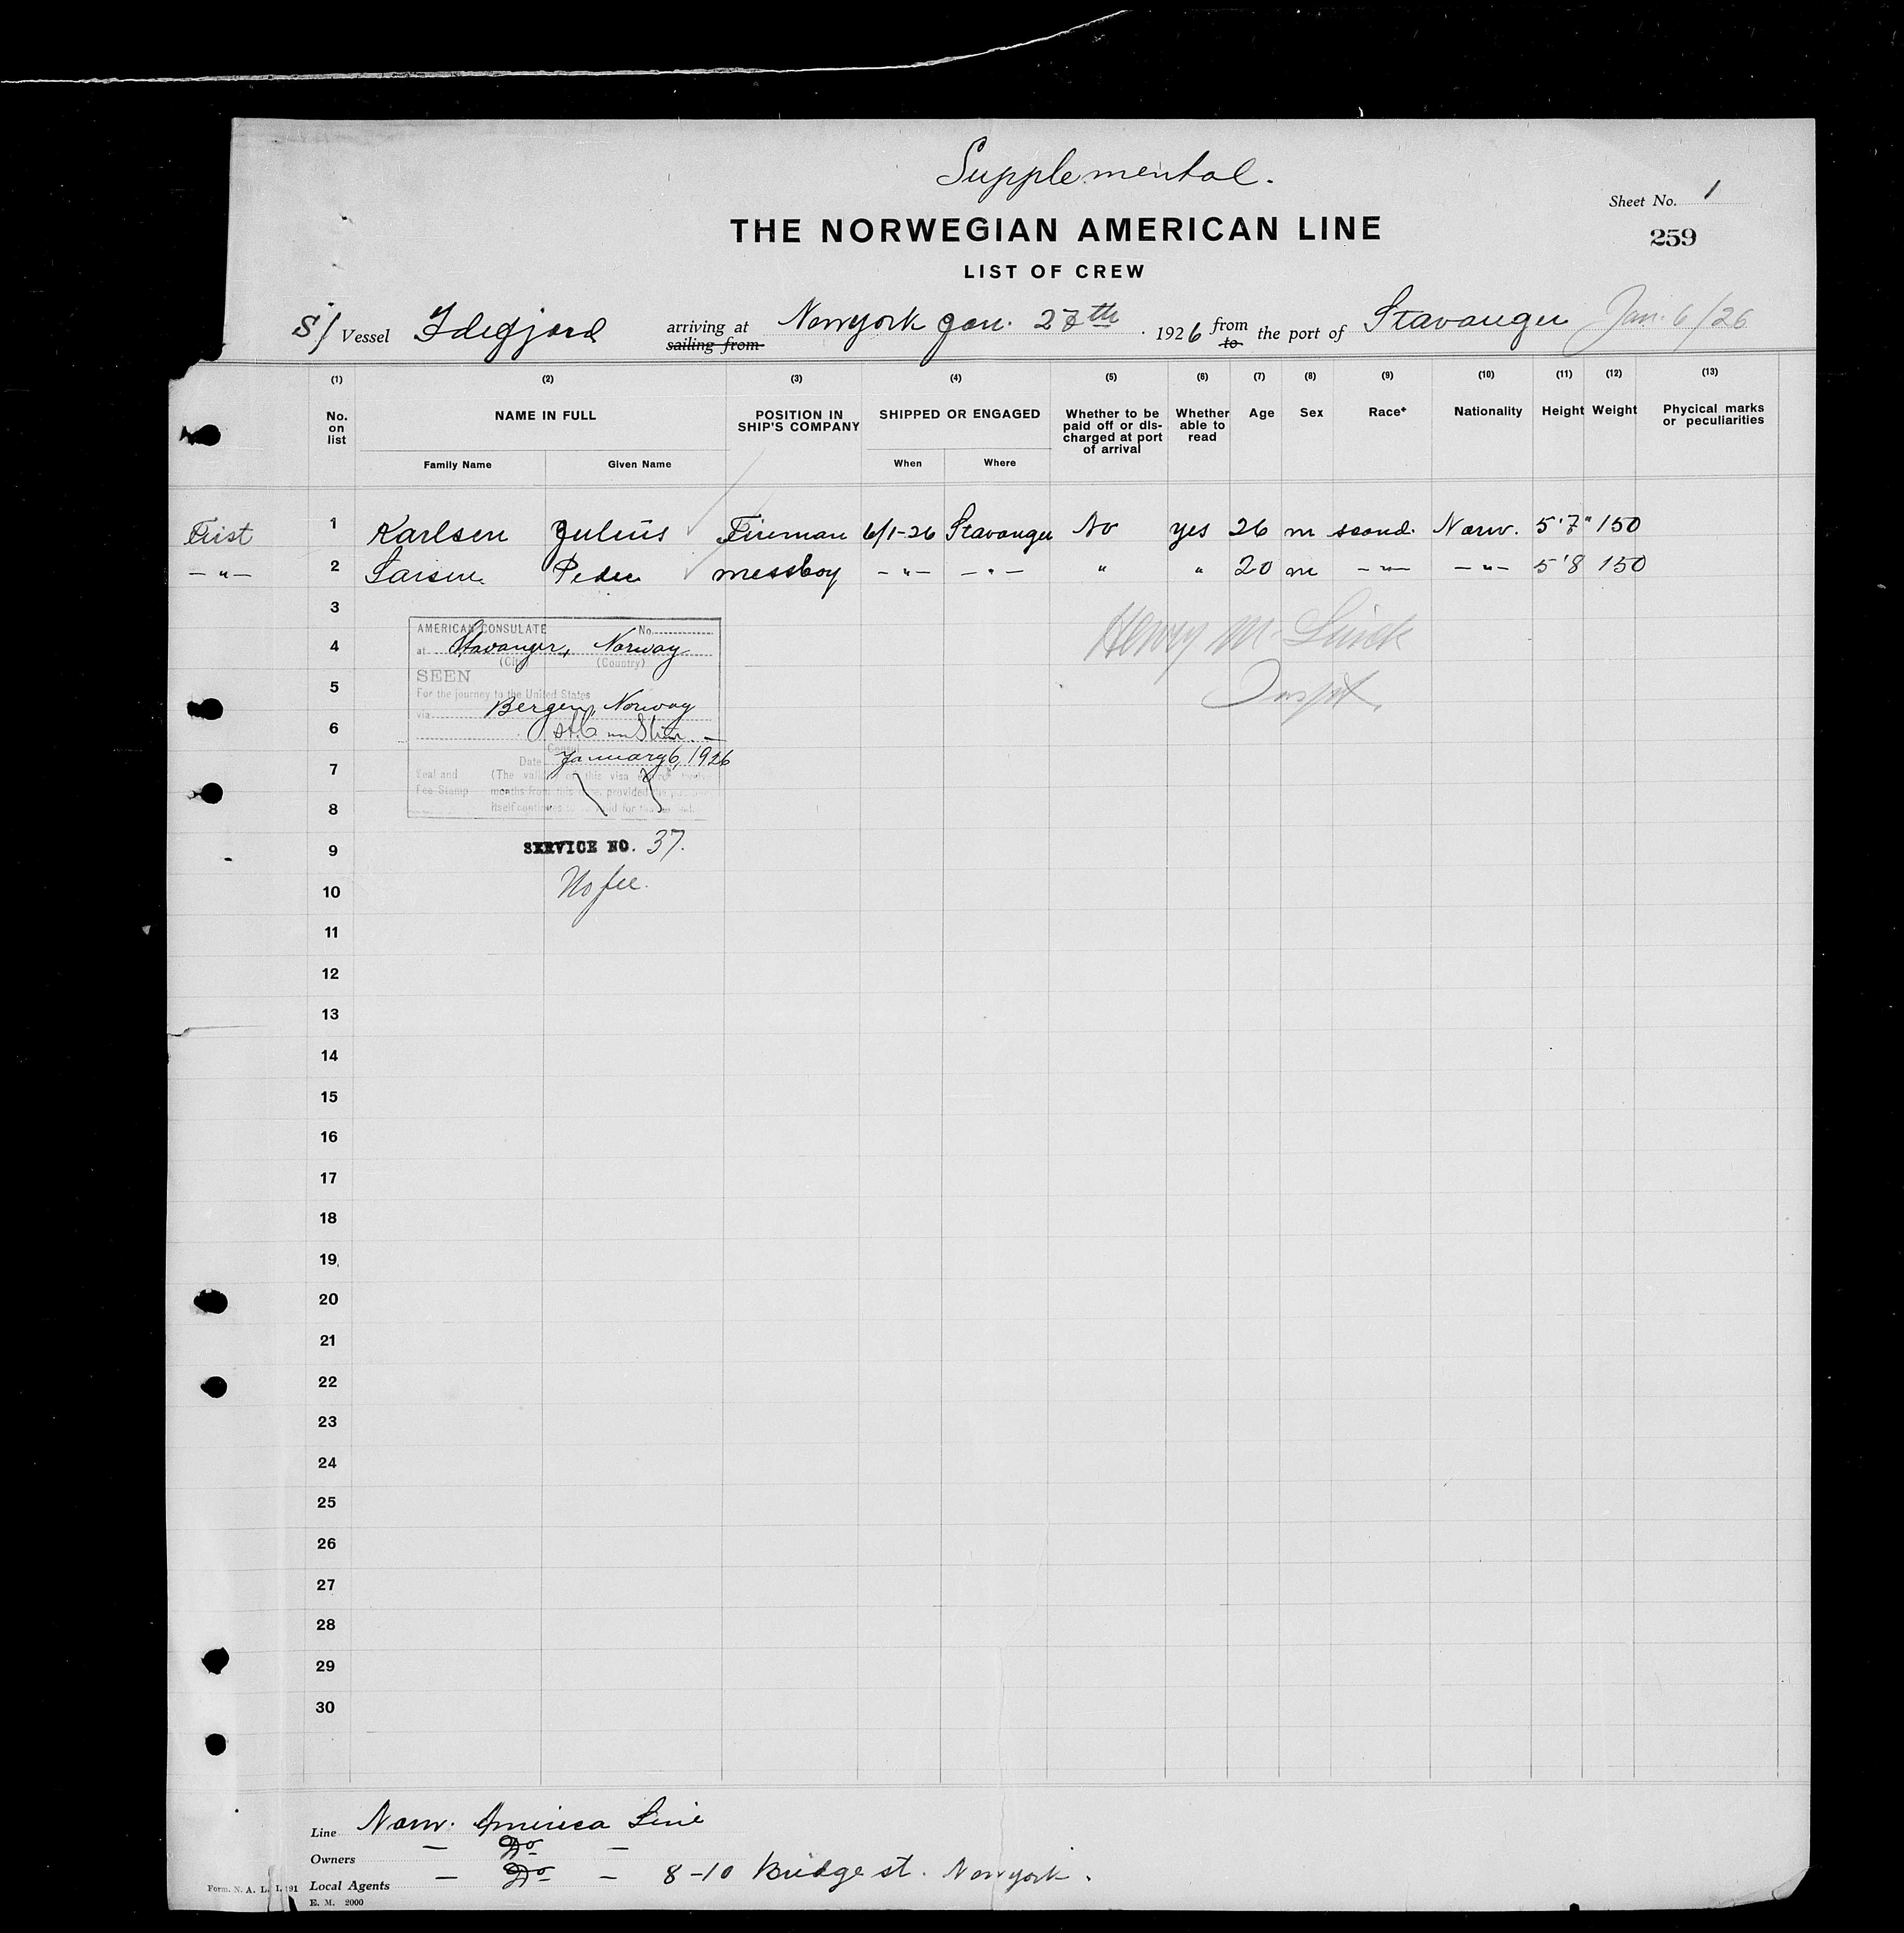 Supplemental.
Sheet No. 1
THE NORWEGIAN AMERICAN LINE
259
LIST OF CREW
S/ Vessel Idefjord arriving at Newyork Jan. 27th 1926 from the port of Stavanger Jan. 6/26
sailing from to
(1) (2) (3) (4) (5) (6) (7) (8) (9) (10) (11) (12) (13)
No. on list NAME IN FULL POSITION IN SHIP'S COMPANY SHIPPED OR ENGAGED Whether to be paid off or dis-charged at port of arrival Whether able to read Age Sex Race* Nationality Height Weight Phycical marks or peculiarities
Family Name Given Name When Where
First 1 Karlsen Julius Fireman 6/1-26 Stavanger No yes 26 m scand. Norw. 5'7" 150
— " — 2 Larsen Peder messboy — " — — " — " " 20 m — " — — " — 5'8 150
3
AMERICAN CONSULATE No.
4
at Stavanger, Norway
(City) (Country)
SEEN
5
For the journey to the United States
via Bergen, Norway
6
Consul
Date January 6, 1926
7
Seal and (The validity of this visa
Fee Stamp months from this date, provided the
8
itself continues to valid for
SERVICE NO. 37.
9
No fee.
10
11
12
13
14
15
16
17
18
19
20
21
22
23
24
25
26
27
28
29
30
Line Norw. America Line
Owners — Do —
Local Agents — Do — 8-10 Bridge st. Newyork.
Form. N. A. L.
E. M. 2000